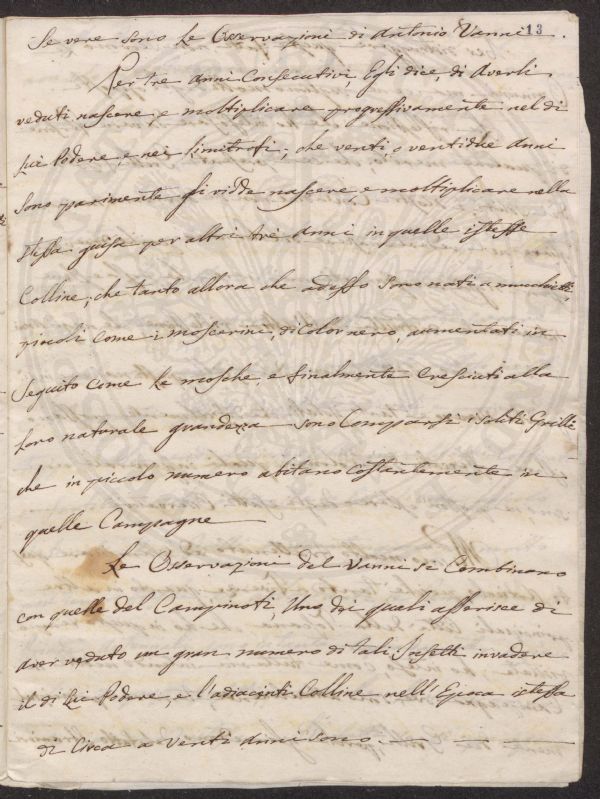 13
Se vere sono le Osservazioni di Antonio Vanni.
Per tre anni Consecutivi, Egli dice, di Averli
veduti nascere, e moltiplicare progressivamente nel di
Lui Podere, e nei limitrofi; che venti, o ventidue anni
Sono parimente si vidde nascere, e moltiplicare nella
stessa guisa per altri tre anni in quelle istesse
Colline; che tanto allora che adesso sono nati a mucchietti
piccoli come i moscerini, di color nero, aumentati in
Seguito come le mosche, e finalmente Cresciuti alla
loro naturale grandezza sono Comparsi i soliti Grilli
che in piccolo numero abitano Costantemente in
quelle Campagne
Le Osservazioni del Vanni si Combinano
con quelle del Campinoti, Uno dei quali asserisce di
aver veduto un gran numero di tali Insetti invadere
il di Lui Podere, e l'adiacenti Colline nell'Epoca istessa
di Circa a Venti Anni sono